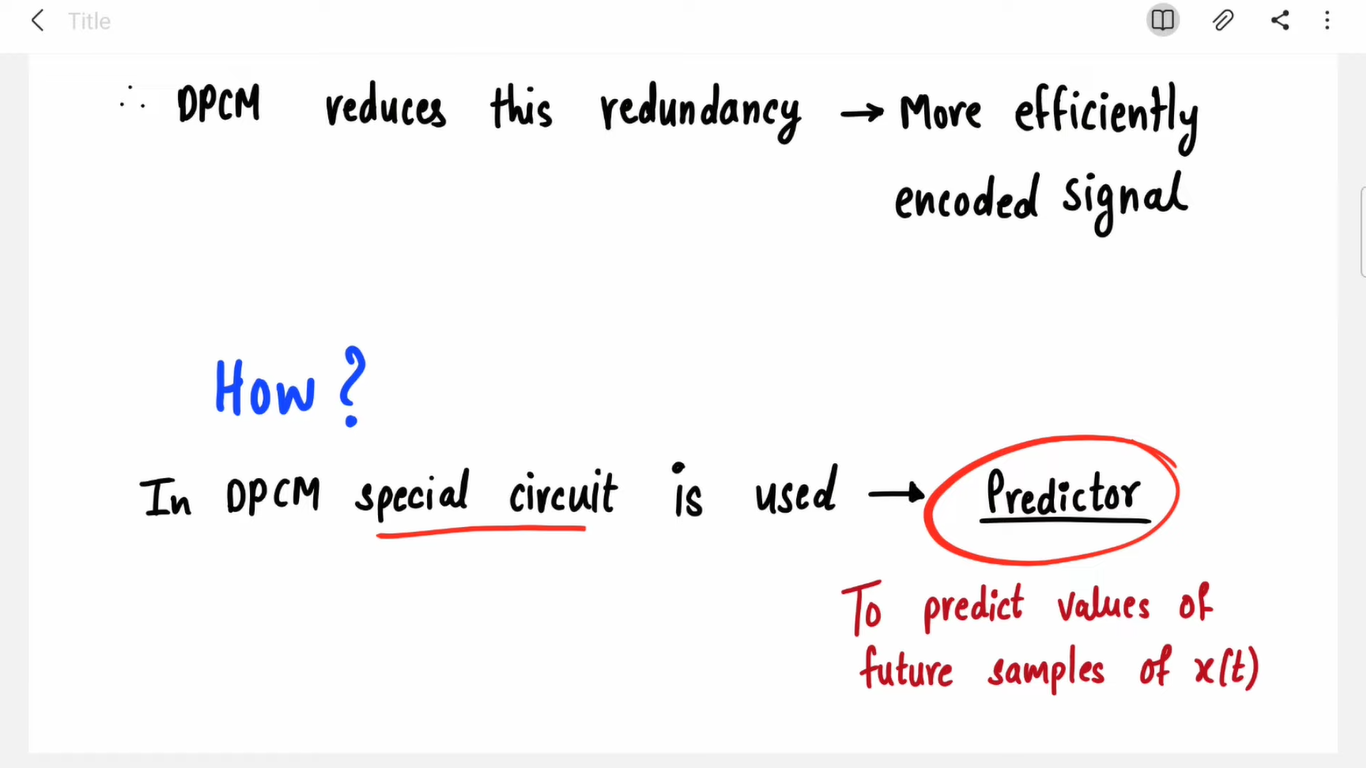 Title
∴ DPCM reduces this redundancy → More efficiently
encoded signal
How?
In DPCM special circuit is used → Predictor
To predict values of
future samples of x(t)